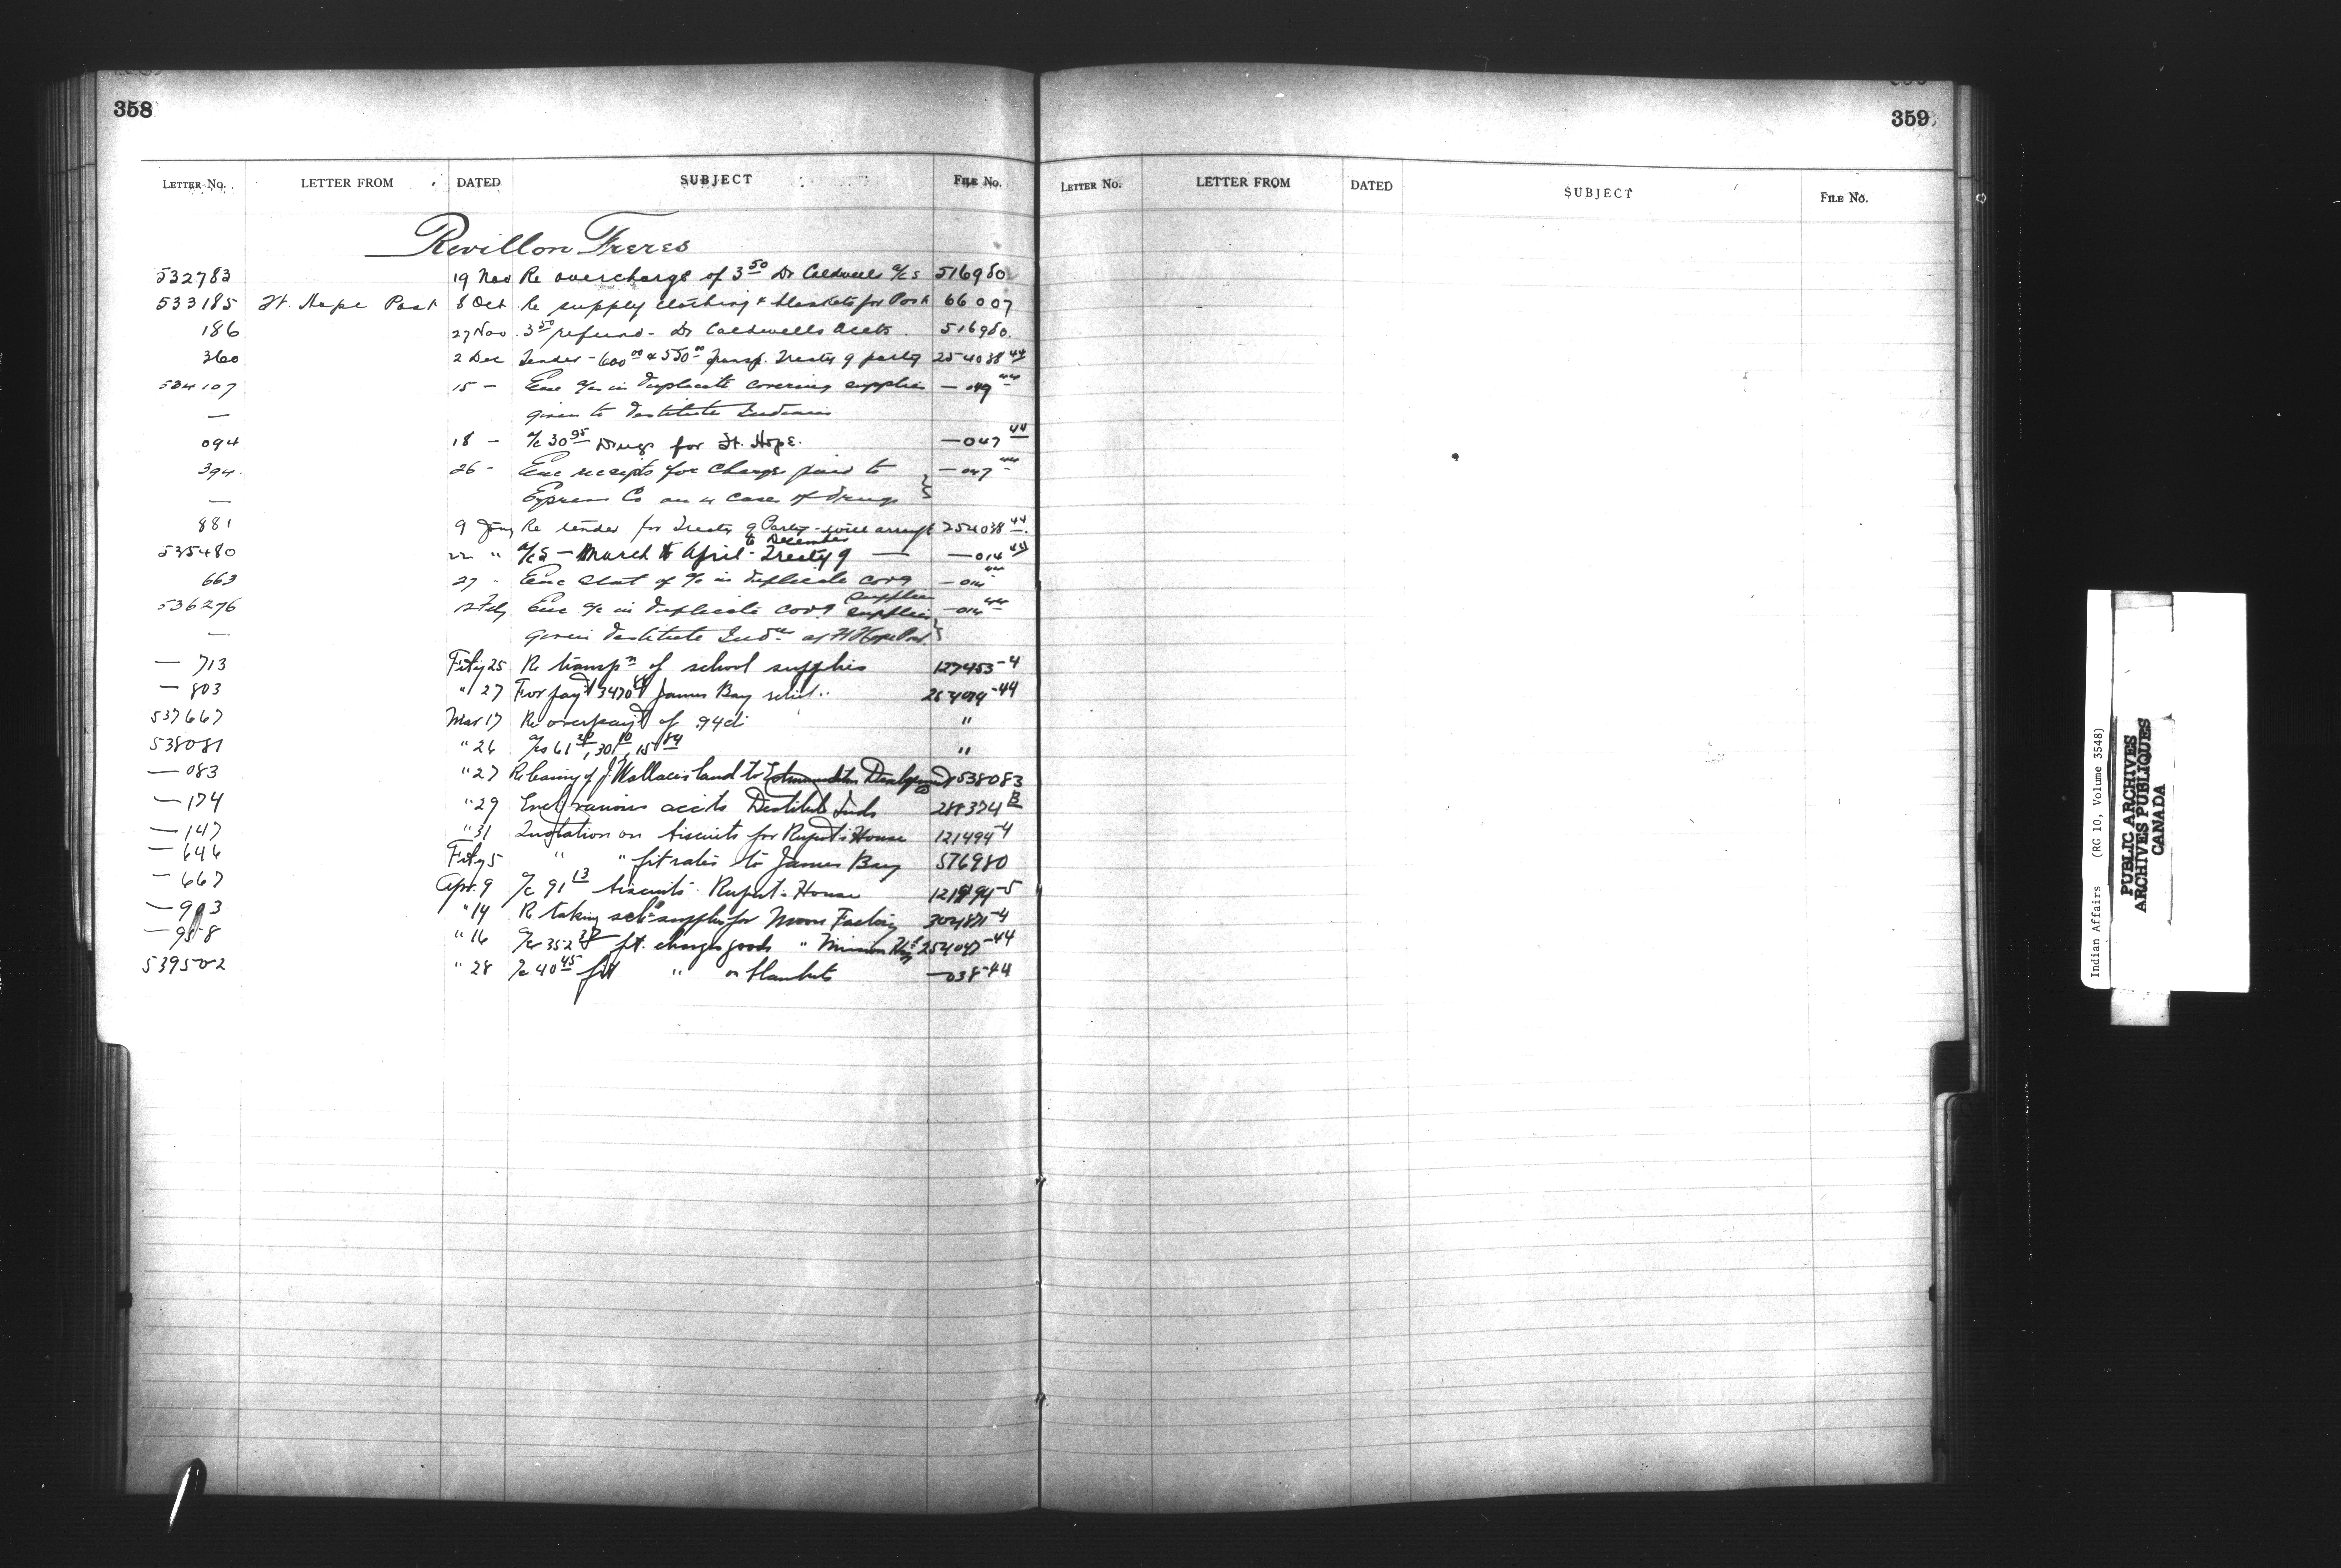 358
LETTER No. LETTER FROM DATED SUBJECT FILE No.
Revillon Freres
532783 19 Nov Re overcharge of 3 50 Dr Caldwells a/cs 516980
533185 Ft. Hope Post 8 Oct Re supply clothing & blankets for Post 66007
186 27 Nov 3 50 refund - Dr Caldwells Accts. 516980.
360 2 Dec Tender - 600 00 & 550 00 Transp. Treaty 9 party 254038 44
534107 15 - Enc a/cs in duplicate covering supplies
— given to destitute Indians
094 18 - a/c 30 95 Drugs for Ft. Hope. — 047 44
394 26 - Enc receipts for charges paid to — 047 44
— Express Co on 4 cases of drugs
881 9 Jany Re tender for Treaty 9 Party - will arrange 254038 44
535480 22 " a/cs - March to April - Treaty 9 — — 014 44
to December
663 27 " Enc Stat of a/c in duplicate covg
supplies
536276 12 Feby Enc a/c in duplicate covg supplies
— given destitute Inds at Ft Hope Post.
— 713 Feby 25 Re transpn of school supplies 127453-4
— 803 " 27 For payt James Bay relief
537667 Mar 17 Re overpayt of .94c "
538081 " 26 a/cs 61 20, 30 10, 15 84 "
— 083 " 27 Re leasing of J. Wallaces land to Edmundston Development Co 538083
— 174 " 29 Encl various accts Destitute Inds
— 147 " 31 Quotation on biscuits for Rupert's House 121494-4
— 646 Feby 5 " " frt rates to James Bay 576980
— 667 Apr. 9 a/c 91 13 biscuits Rupert's House
— 903 " 14 Re taking schl supplies for Moose Factory
— 958 " 16 frt. charges goods " 254047-44
539502 " 28 a/c 40 45 frt " on blankets — 038-44
359
LETTER No. LETTER FROM DATED SUBJECT FILE No.
Indian Affairs (RG 10, Volume 3548)
PUBLIC ARCHIVES
ARCHIVES PUBLIQUES
CANADA